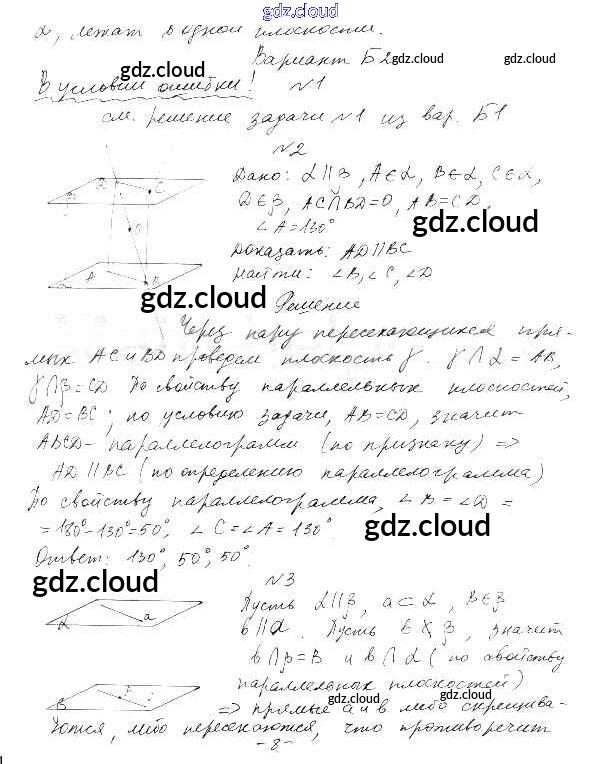 gdz.cloud
α, лежат в одной плоскости.
Вариант Б2
gdz.cloud gdz.cloud gdz.cloud
В условии ошибки! №1
см. решение задачи №1 из вар. Б1
№2
Дано: α||β, A∈α, B∈α, C∈α,
D∈β, AC∩BD=O, AB=CD,
∠A=130°
gdz.cloud
Доказать: AD||BC
Найти: ∠B, ∠C, ∠D
gdz.cloud
Решение
Через пару пересекающихся пря-
мых AC и BD проведем плоскость γ. γ∩α=AB,
γ∩β=CD По свойству параллельных плоскостей,
AD=BC; по условию задачи, AB=CD, значит
ABCD- параллелограмм (по признаку) =>
AD||BC (по определению параллелограмма)
По свойству параллелограмма, ∠B=∠D=
=180°-130°=50°, ∠C=∠A=130°.
gdz.cloud
Ответ: 130°, 50°, 50°.
gdz.cloud
№3
Пусть α||β, a⊂α, B∈β
b||a. Пусть b β, значит
b∩β=B и b∩α (по свойству
параллельных плоскостей)
gdz.cloud gdz.cloud gdz.cloud
=> прямые a и b либо скрещива-
ются, либо пересекаются, что противоречит
-8-